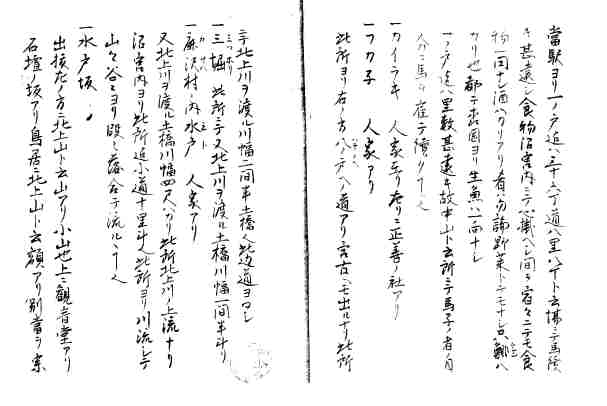 當駅ヨリ一ノ戸迄ハ三十六丁道八里八丁ト云場ニテ馬續
キ甚遠シ食物沼宮内ニテ心懸ヘシ間々宿々ニテモ食
物一向ナシ酒ハカリアリ有ハ勿論野菜トテモナシ只
カリ也都テ此国ヨリ生魚ハ一向ナシ
一ノ戸迄八里数甚遠キ故中山ト云所ニテ馬子ノ者自
分ニ馬ヲ雇テ續クナリ
一カイラキ 人家アリ左リニ正善ノ社アリ
一フカ子 人家アリ
此所ヨリ右ノ方八ノ戸ヘノ道アリ宮古ヘモ出ルナリ此所
ニテ北上川ヲ渡ル川幅二間半土橋也此辺道ヨロシ
一三堀 此所ニテ又北上川ヲ渡ル土橋川幅一間半斗リ
一麻沢村ノ内水戸 人家アリ
又北上川ヲ渡ル土橋川幅四尺ハカリ此所北上川ノ上流ナリ
沼宮内ヨリ此所迄小道十里半此所ヨリ川流シテ
山々谷々ヨリ段々落合テ流ルヽナリ
一水戸坂
出拔左ノ方ニ北上山ト云山アリ小山也上ニ觀音堂アリ
石壇ノ坂アリ鳥居ニ北上山ト云額アリ別當ヲ